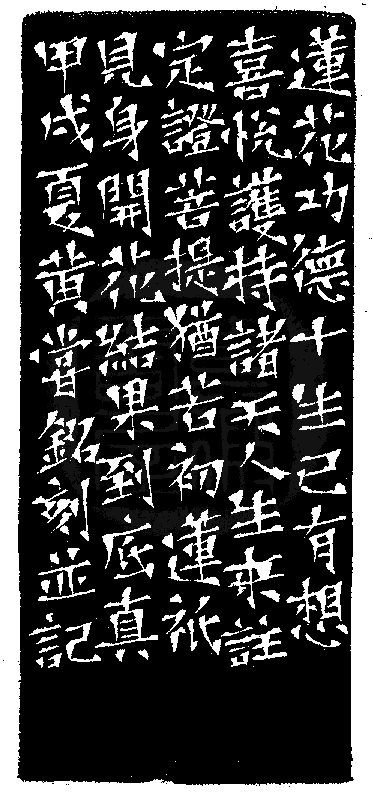 蓮花功德十生已有想
喜悅護持諸天人生來註
定證菩提猶若初蓮祇
見身開花結果到底真
甲戌夏黄嘗銘刻並記